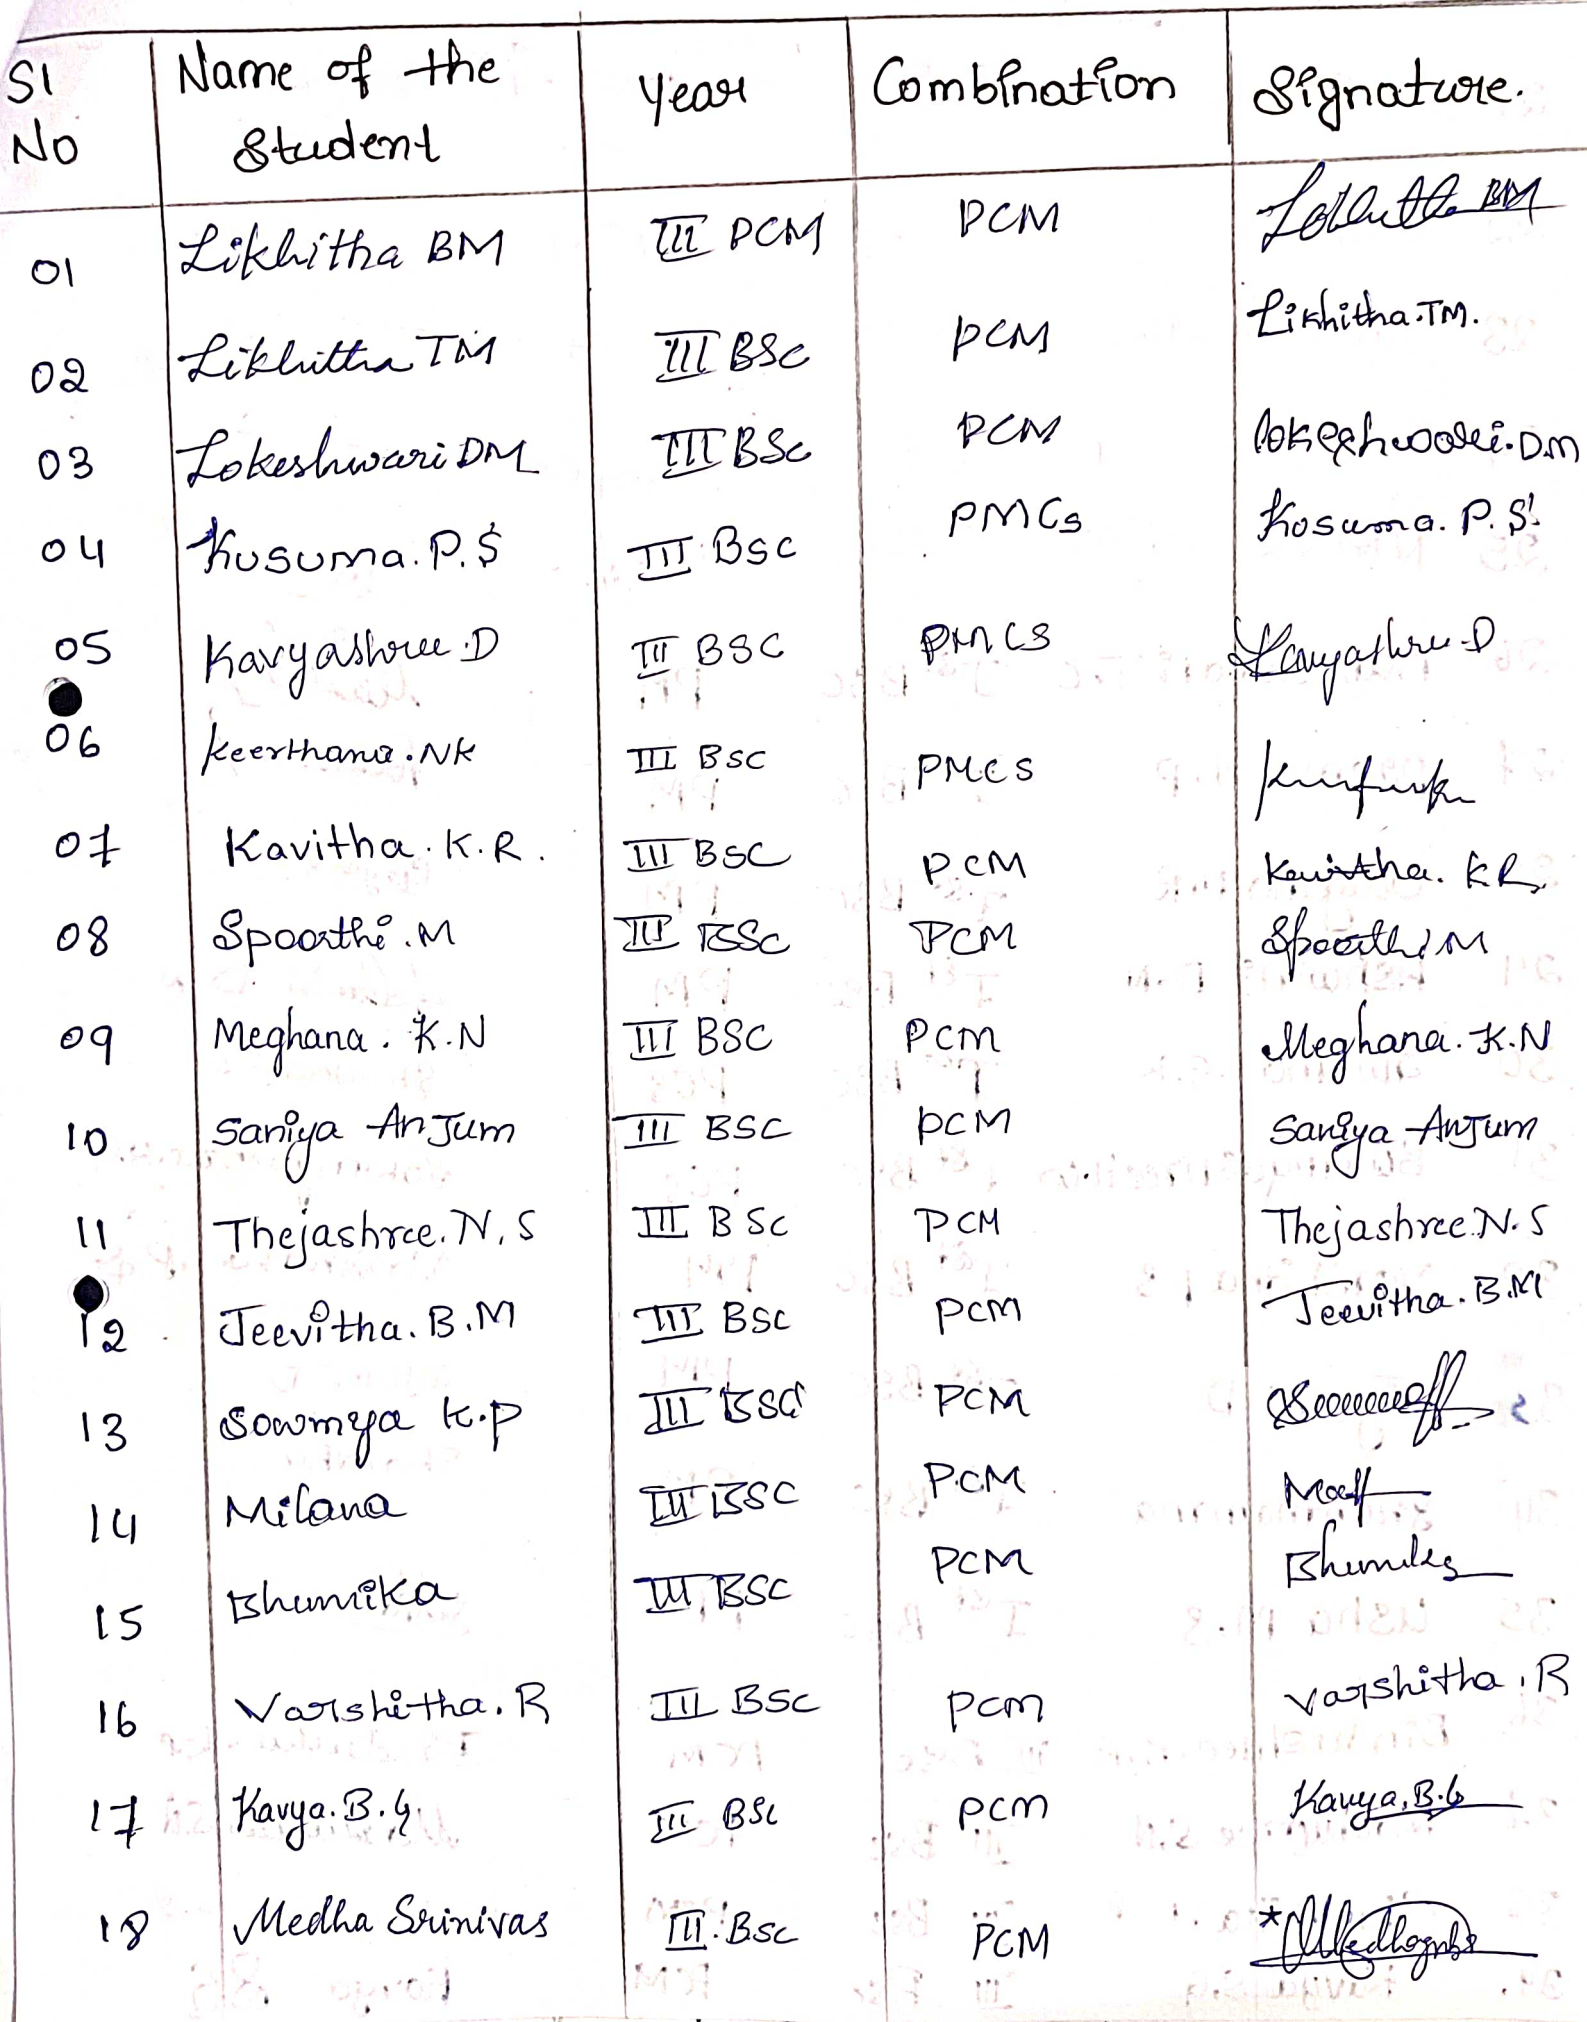 Sl No Name of the Student Year Combination Signature.
01 Likhitha BM III PCM PCM BM
02 Likhitha TM III BSc PCM Likhitha.TM.
03 Lokeshwari DM III BSc PCM Lokeshwari.DM
04 Kusuma. P. S III BSc PMCs Kusuma. P. S
05 Kavyashree.D III BSC PMCS Kavyashree.D
06 Keerthana.NK III BSC PMCS
07 Kavitha. K. R. III BSC PCM Kavitha. KR
08 Spoorthi.M III BSC PCM Spoorthi M
09 Meghana. K.N III BSC PCM Meghana. K.N
10 Saniya Anjum III BSC PCM Saniya Anjum
11 Thejashree. N. S III BSc PCM Thejashree.N.S
12 Jeevitha. B.M III BSC PCM Jeevitha. B.M
13 Sowmya K.P III BSC PCM
14 Milana III BSC P.CM
15 Bhumika III BSC PCM
16 Varshitha. R III BSC PCM Varshitha. R
17 Kavya. B. G. III BSc PCM Kavya. B.G
18 Medha Srinivas III. BSC PCM